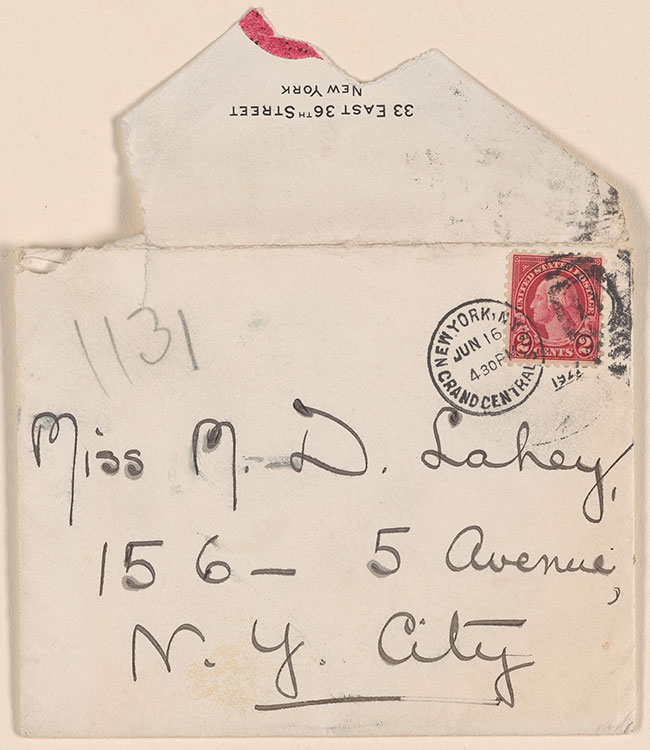 33 East 36th Street
New York
UNITED STATES POSTAGE
2 CENTS 2
NEW YORK, N.Y.
JUN 16
4 30 P
GRAND CENTRAL
1131
Miss M. D. Lahey,
156 – 5 Avenue,
N. Y. City